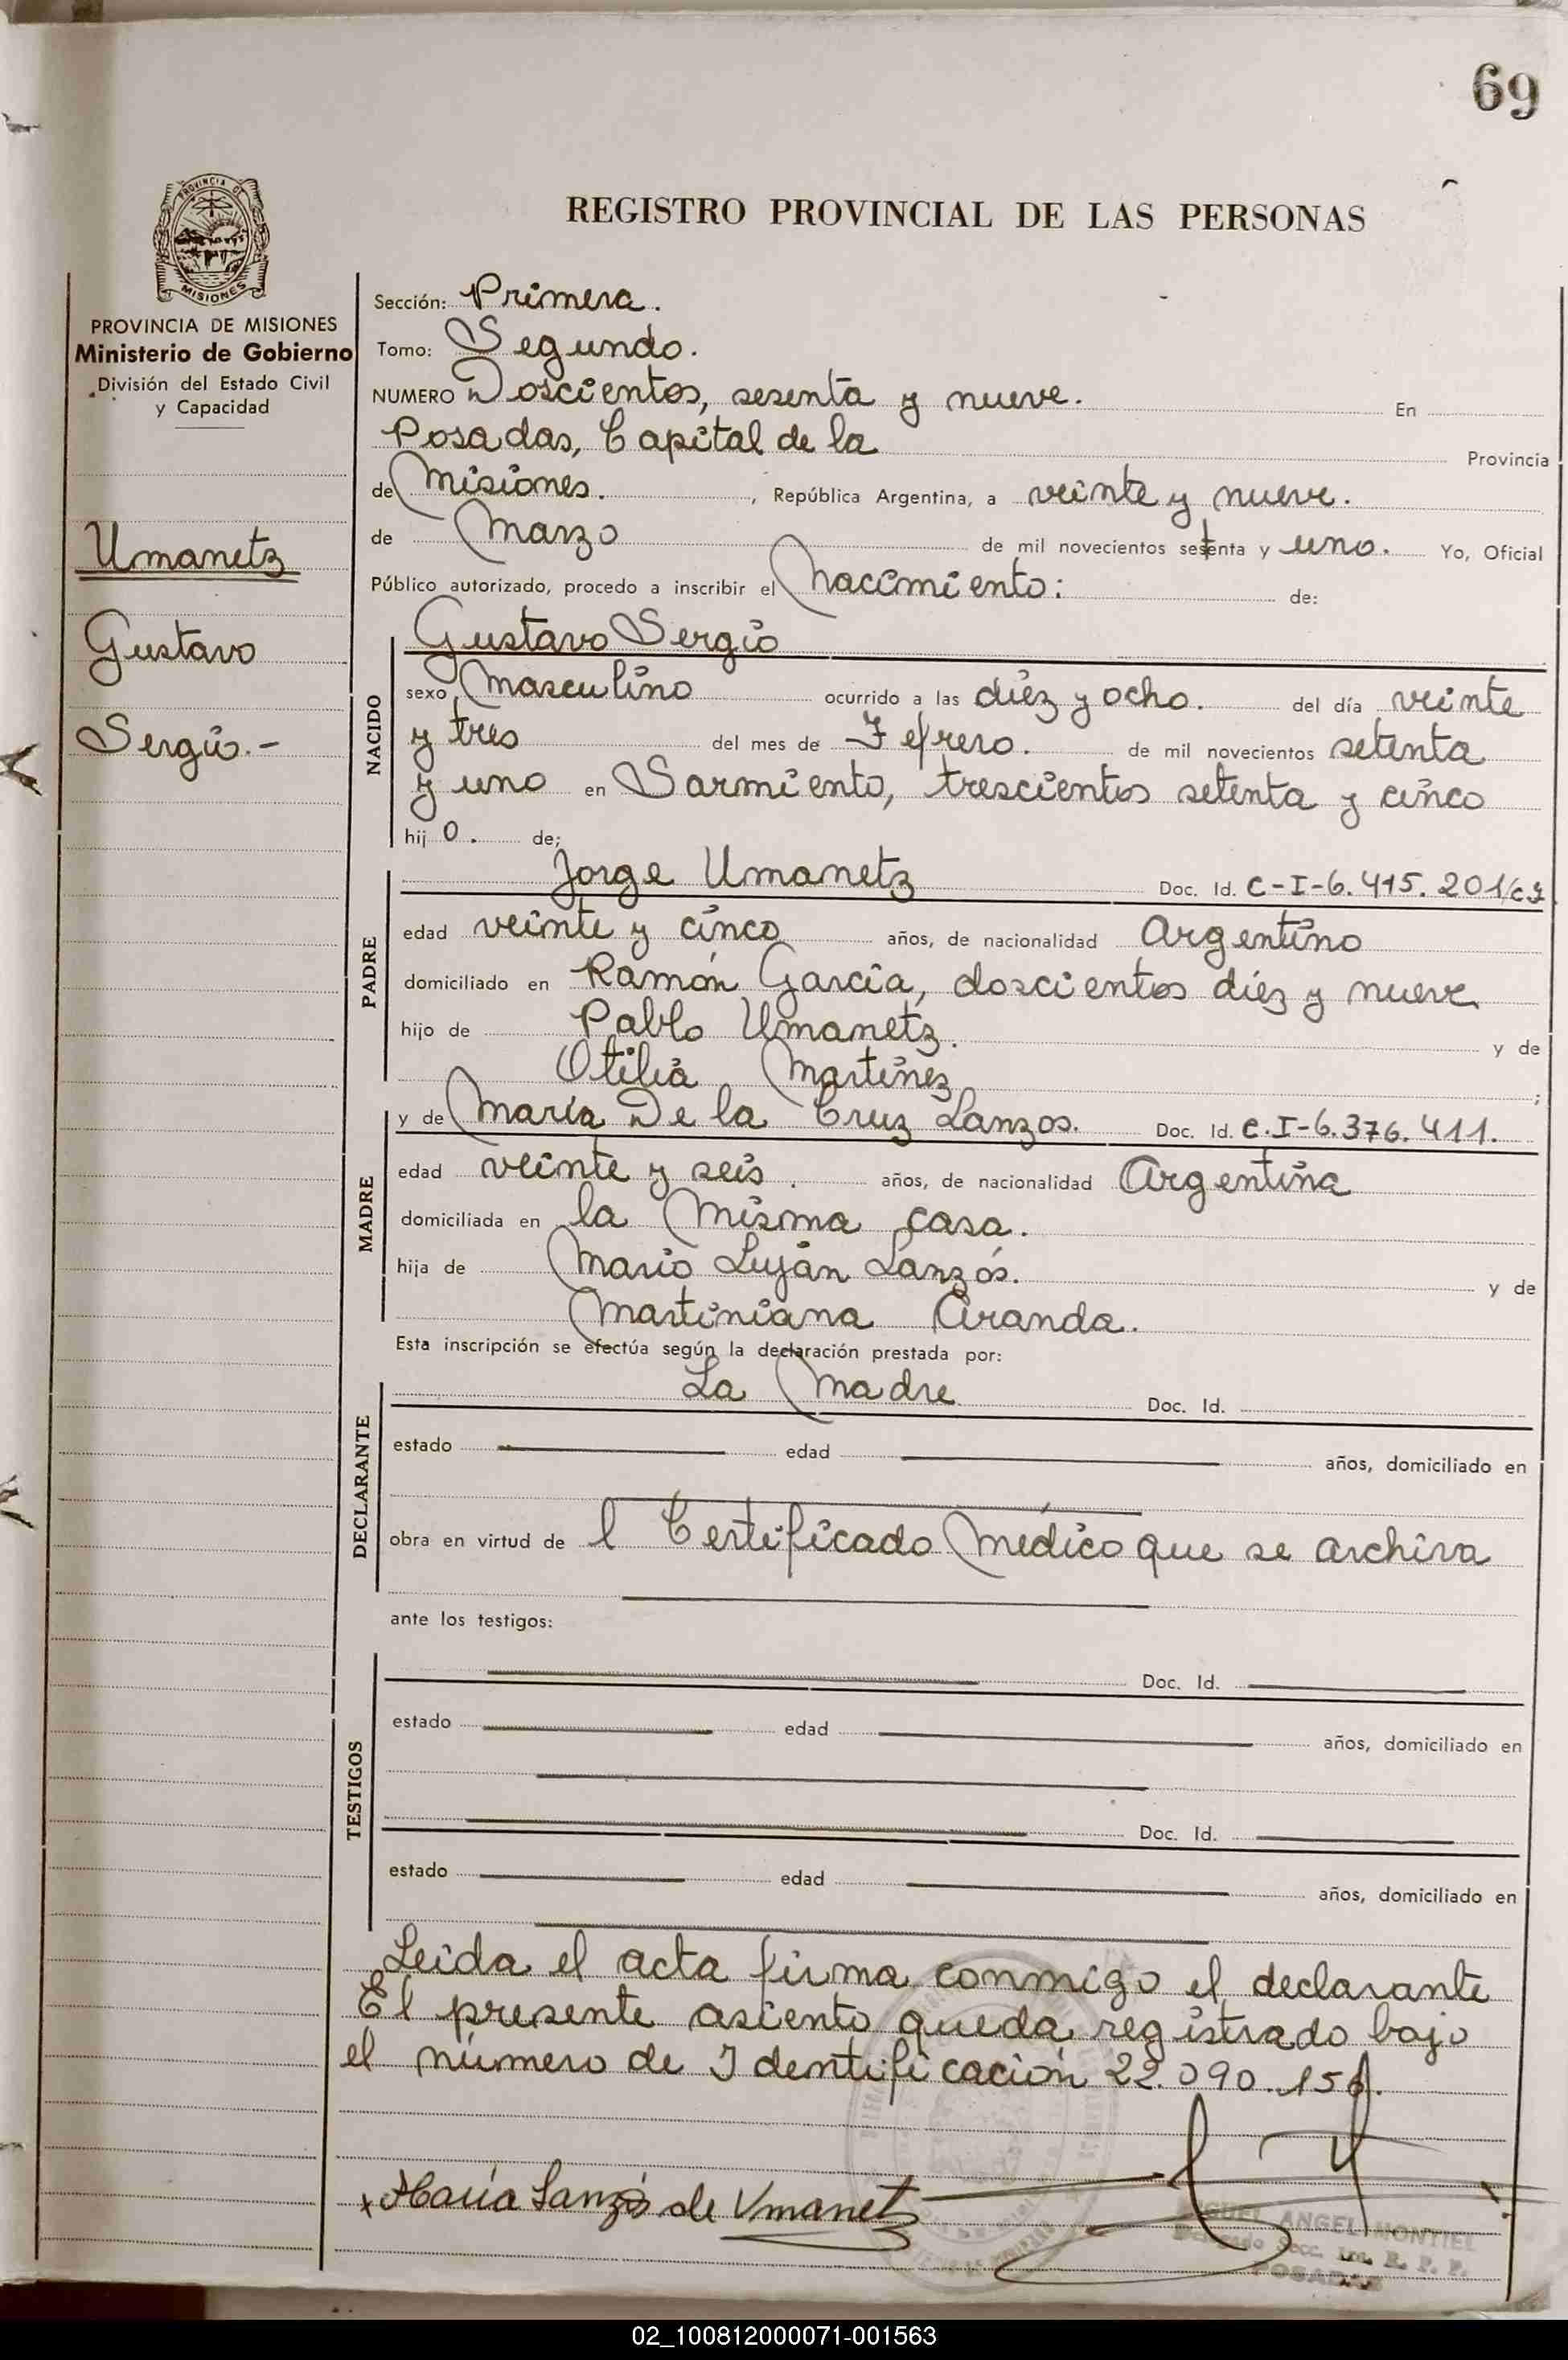 69
REGISTRO PROVINCIAL DE LAS PERSONAS
PROVINCIA DE
MISIONES
PROVINCIA DE MISIONES
Ministerio de Gobierno
División del Estado Civil
y Capacidad
Umanetz
Gustavo
Sergio.-
Sección: Primera.
Tomo: Segundo.
NUMERO Doscientos, sesenta y nueve. En
Posadas, Capital de la Provincia
de Misiones. , República Argentina, a veinte y nueve.
de Marzo de mil novecientos setenta y uno. Yo, Oficial
Público autorizado, procedo a inscribir el Nacimiento: de:
NACIDO
Gustavo Sergio
sexo Masculino ocurrido a las diéz y ocho. del día veinte
y tres del mes de Febrero. de mil novecientos setenta
y uno en Sarmiento, trescientos setenta y cinco
hij o. de;
PADRE
Jorge Umanetz Doc. Id. C-I-6.415.201
edad veinte y cinco años, de nacionalidad Argentino
domiciliado en Ramón García, doscientos diéz y nueve
hijo de Pablo Umanetz. y de
Otilia Martínez ;
MADRE
y de María De la Cruz Lanzos. Doc. Id. C.I-6.376.411.
edad veinte y seis. años, de nacionalidad Argentina
domiciliada en la Misma casa.
hija de Mario Luján Lanzós. y de
Martiniana Aranda.
Esta inscripción se efectúa según la declaración prestada por:
DECLARANTE
La Madre Doc. Id.
estado edad años, domiciliado en
obra en virtud de l Certificado Médico que se archiva
ante los testigos:
TESTIGOS
Doc. Id.
estado edad años, domiciliado en
Doc. Id.
estado edad años, domiciliado en
Leida el acta firma conmigo el declarante
El presente asiento queda registrado bajo
el número de Identificación 22.090.156.
x María Lanzós de Umanetz
MIGUEL ANGEL MONTIEL
Secc. R. P. P.
POSADAS
02_100812000071-001563